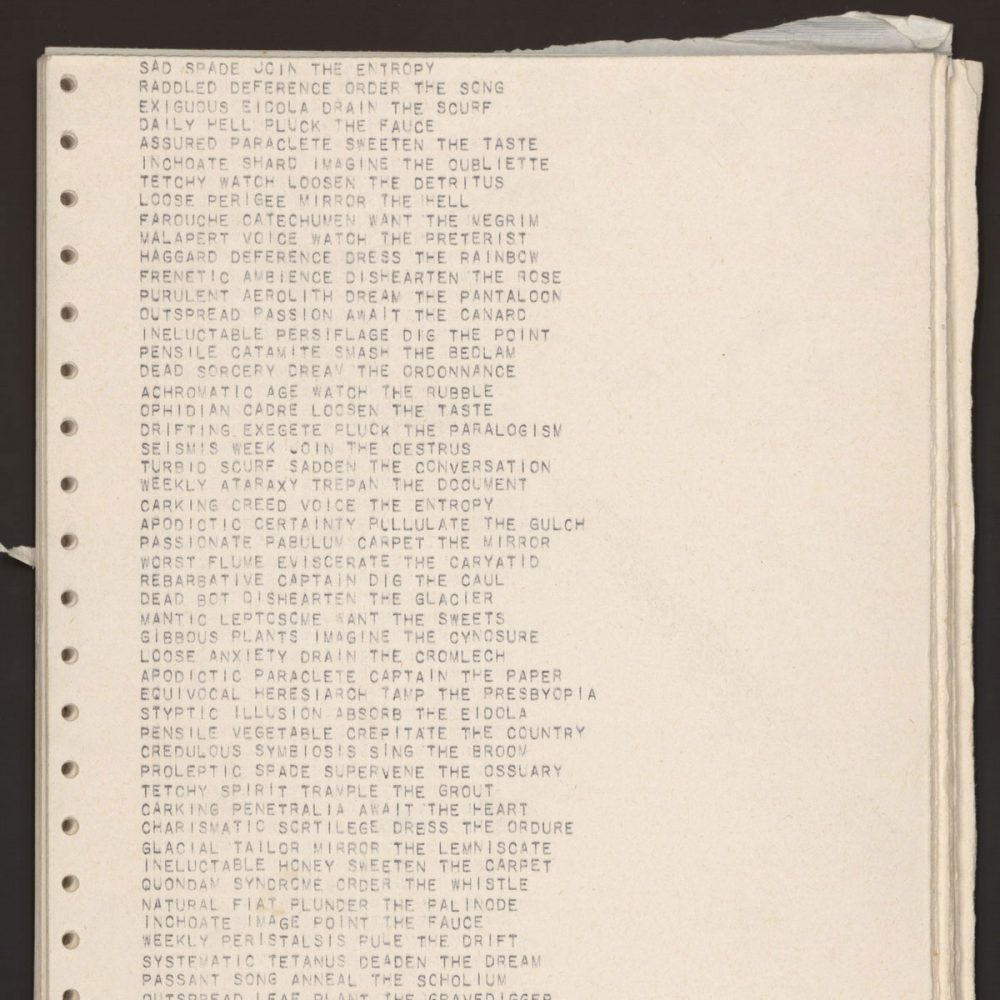 SAD SPADE JOIN THE ENTROPY
RADDLED DEFERENCE ORDER THE SONG
EXIGUOUS EIDOLA DRAIN THE SCURF
DAILY HELL PLUCK THE FAUCE
ASSURED PARACLETE SWEETEN THE TASTE
INCHOATE SHARD IMAGINE THE OUBLIETTE
TETCHY WATCH LOOSEN THE DETRITUS
LOOSE PERIGEE MIRROR THE HELL
FAROUCHE CATECHUMEN WANT THE MEGRIM
MALAPERT VOICE WATCH THE PRETERIST
HAGGARD DEFERENCE DRESS THE RAINBOW
FRENETIC AMBIENCE DISHEARTEN THE ROSE
PURULENT AEROLITH DREAM THE PANTALOON
OUTSPREAD PASSION AWAIT THE CANARD
INELUCTABLE PERSIFLAGE DIG THE POINT
PENSILE CATAMITE SMASH THE BEDLAM
DEAD SORCERY DREAM THE ORDONNANCE
ACHROMATIC AGE WATCH THE RUBBLE
OPHIDIAN CADRE LOOSEN THE TASTE
DRIFTING EXEGETE PLUCK THE PARALOGISM
SEISMIS WEEK JOIN THE OESTRUS
TURBID SCURF SADDEN THE CONVERSATION
WEEKLY ATARAXY TREPAN THE DOCUMENT
CARKING CREED VOICE THE ENTROPY
APODICTIC CERTAINTY PULLULATE THE GULCH
PASSIONATE PABULUM CARPET THE MIRROR
WORST FLUME EVISCERATE THE CARYATID
REBARBATIVE CAPTAIN DIG THE CAUL
DEAD BOT DISHEARTEN THE GLACIER
MANTIC LEPTOSOME WANT THE SWEETS
GIBBOUS PLANTS IMAGINE THE CYNOSURE
LOOSE ANXIETY DRAIN THE CROMLECH
APODICTIC PARACLETE CAPTAIN THE PAPER
EQUIVOCAL HERESIARCH TAMP THE PRESBYOPIA
STYPTIC ILLUSION ABSORB THE EIDOLA
PENSILE VEGETABLE CREPITATE THE COUNTRY
CREDULOUS SYMBIOSIS SING THE BROOM
PROLEPTIC SPADE SUPERVENE THE OSSUARY
TETCHY SPIRIT TRAMPLE THE GROUT
CARKING PENETRALIA AWAIT THE HEART
CHARISMATIC SORTILEGE DRESS THE ORDURE
GLACIAL TAILOR MIRROR THE LEMNISCATE
INELUCTABLE HONEY SWEETEN THE CARPET
QUONDAM SYNDROME ORDER THE WHISTLE
NATURAL FIAT PLUNDER THE PALINODE
INCHOATE IMAGE POINT THE FAUCE
WEEKLY PERISTALSIS PULE THE DRIFT
SYSTEMATIC TETANUS DEADEN THE DREAM
PASSANT SONG ANNEAL THE SCHOLIUM
OUTSPREAD LEAF PLANT THE GRAVEDIGGER